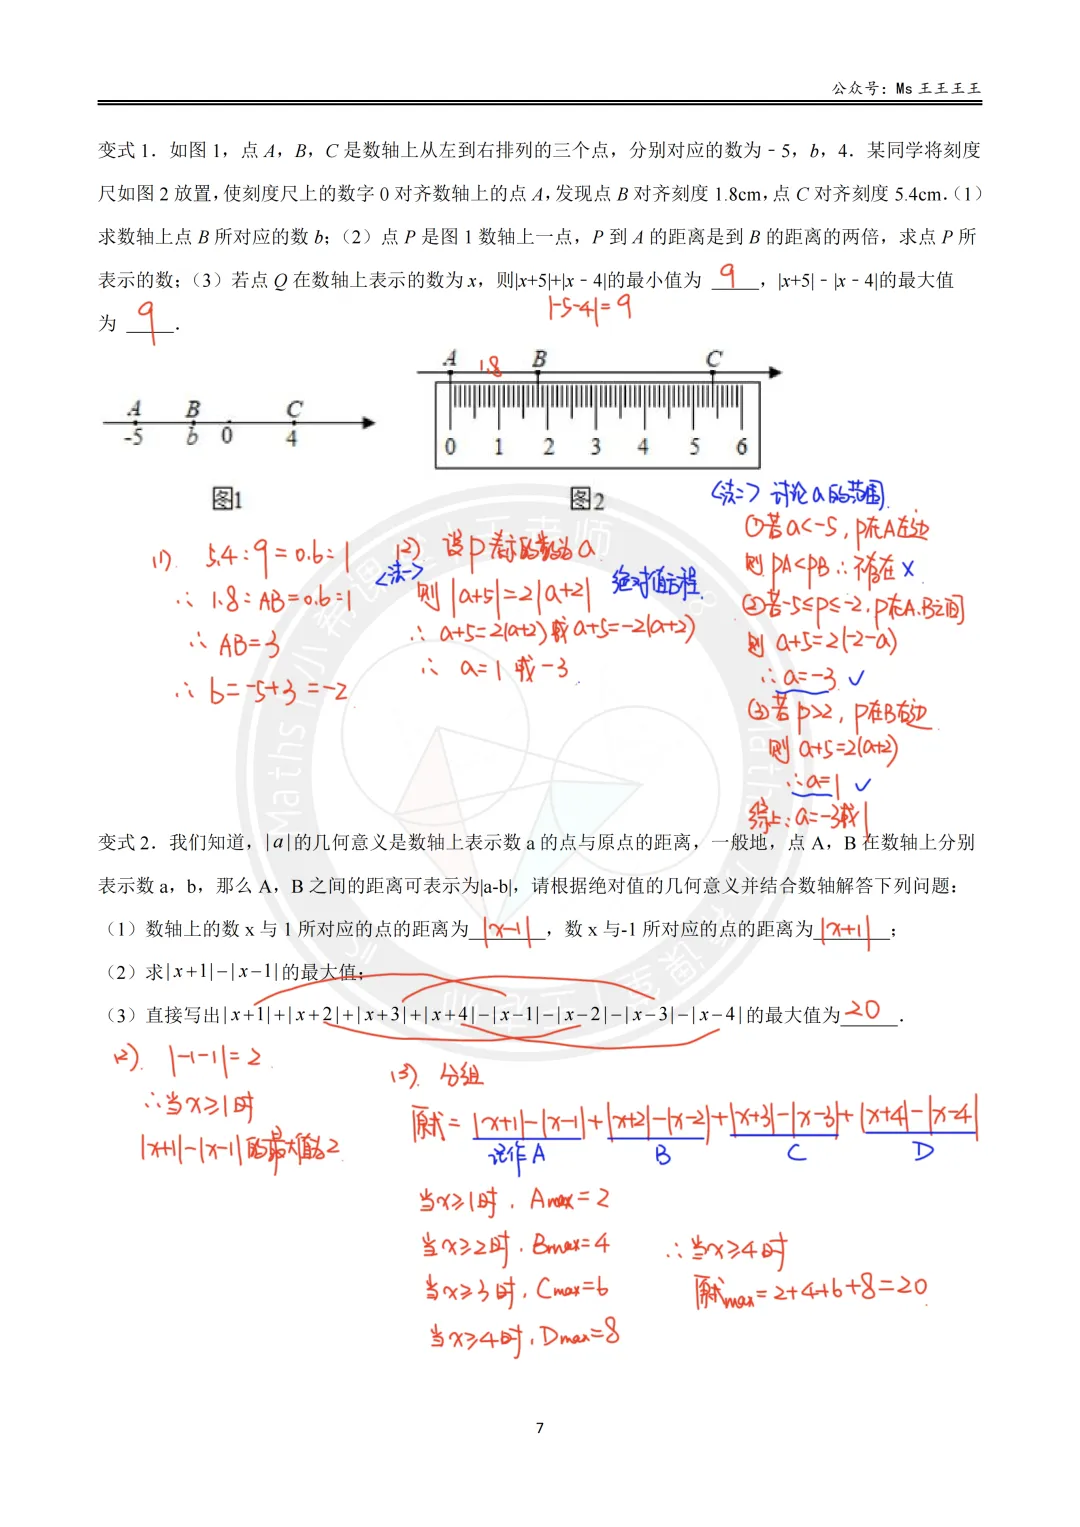 公众号：Ms 王王王王
变式 1．如图 1，点 A，B，C 是数轴上从左到右排列的三个点，分别对应的数为﹣5，b，4．某同学将刻度
尺如图 2 放置，使刻度尺上的数字 0 对齐数轴上的点 A，发现点 B 对齐刻度 1.8cm，点 C 对齐刻度 5.4cm．（1）
求数轴上点 B 所对应的数 b；（2）点 P 是图 1 数轴上一点，P 到 A 的距离是到 B 的距离的两倍，求点 P 所
表示的数；（3）若点 Q 在数轴上表示的数为 x，则|x+5|+|x﹣4|的最小值为 9，|x+5|﹣|x﹣4|的最大值
|-5-4|=9
为 9．
A B C
-5 b 0 4
图1
A 1.8 B C
0 1 2 3 4 5 6
图2
(1) 5.4:9=0.6:1
∴ 1.8:AB=0.6:1
∴ AB=3
∴ b=-5+3=-2
(2) 设P表示的数为a
<法一>
则 |a+5|=2|a+2| 绝对值方程
∴ a+5=2(a+2)或a+5=-2(a+2)
∴ a=1或-3
<法二> 讨论a的范围
①若a<-5，P在A左边
则PA<PB ∴不存在 x
②若-5≤p≤-2，P在A.B之间
则 a+5=2(-2-a)
∴a=-3 ✓
③若p>2，P在B右边
则 a+5=2(a+2)
∴a=1 ✓
综上：a=-3或1
变式 2．我们知道，|a|的几何意义是数轴上表示数 a 的点与原点的距离，一般地，点 A，B 在数轴上分别
表示数 a，b，那么 A，B 之间的距离可表示为|a-b|，请根据绝对值的几何意义并结合数轴解答下列问题：
（1）数轴上的数 x 与 1 所对应的点的距离为|x-1|，数 x 与-1 所对应的点的距离为|x+1|；
（2）求|x+1|−|x−1|的最大值；
（3）直接写出|x+1|+|x+2|+|x+3|+|x+4|−|x−1|−|x−2|−|x−3|−|x−4|的最大值为20．
(2) |-1-1|=2
∴当x≥1时
|x+1|-|x-1|的最大值为2
(3) 分组
原式= |x+1|-|x-1|+|x+2|-|x-2|+|x+3|-|x-3|+|x+4|-|x-4|
记作A B C D
当x≥1时，Amax=2
当x≥2时，Bmax=4
当x≥3时，Cmax=6
当x≥4时，Dmax=8
∴当x≥4时
原式max=2+4+6+8=20
7